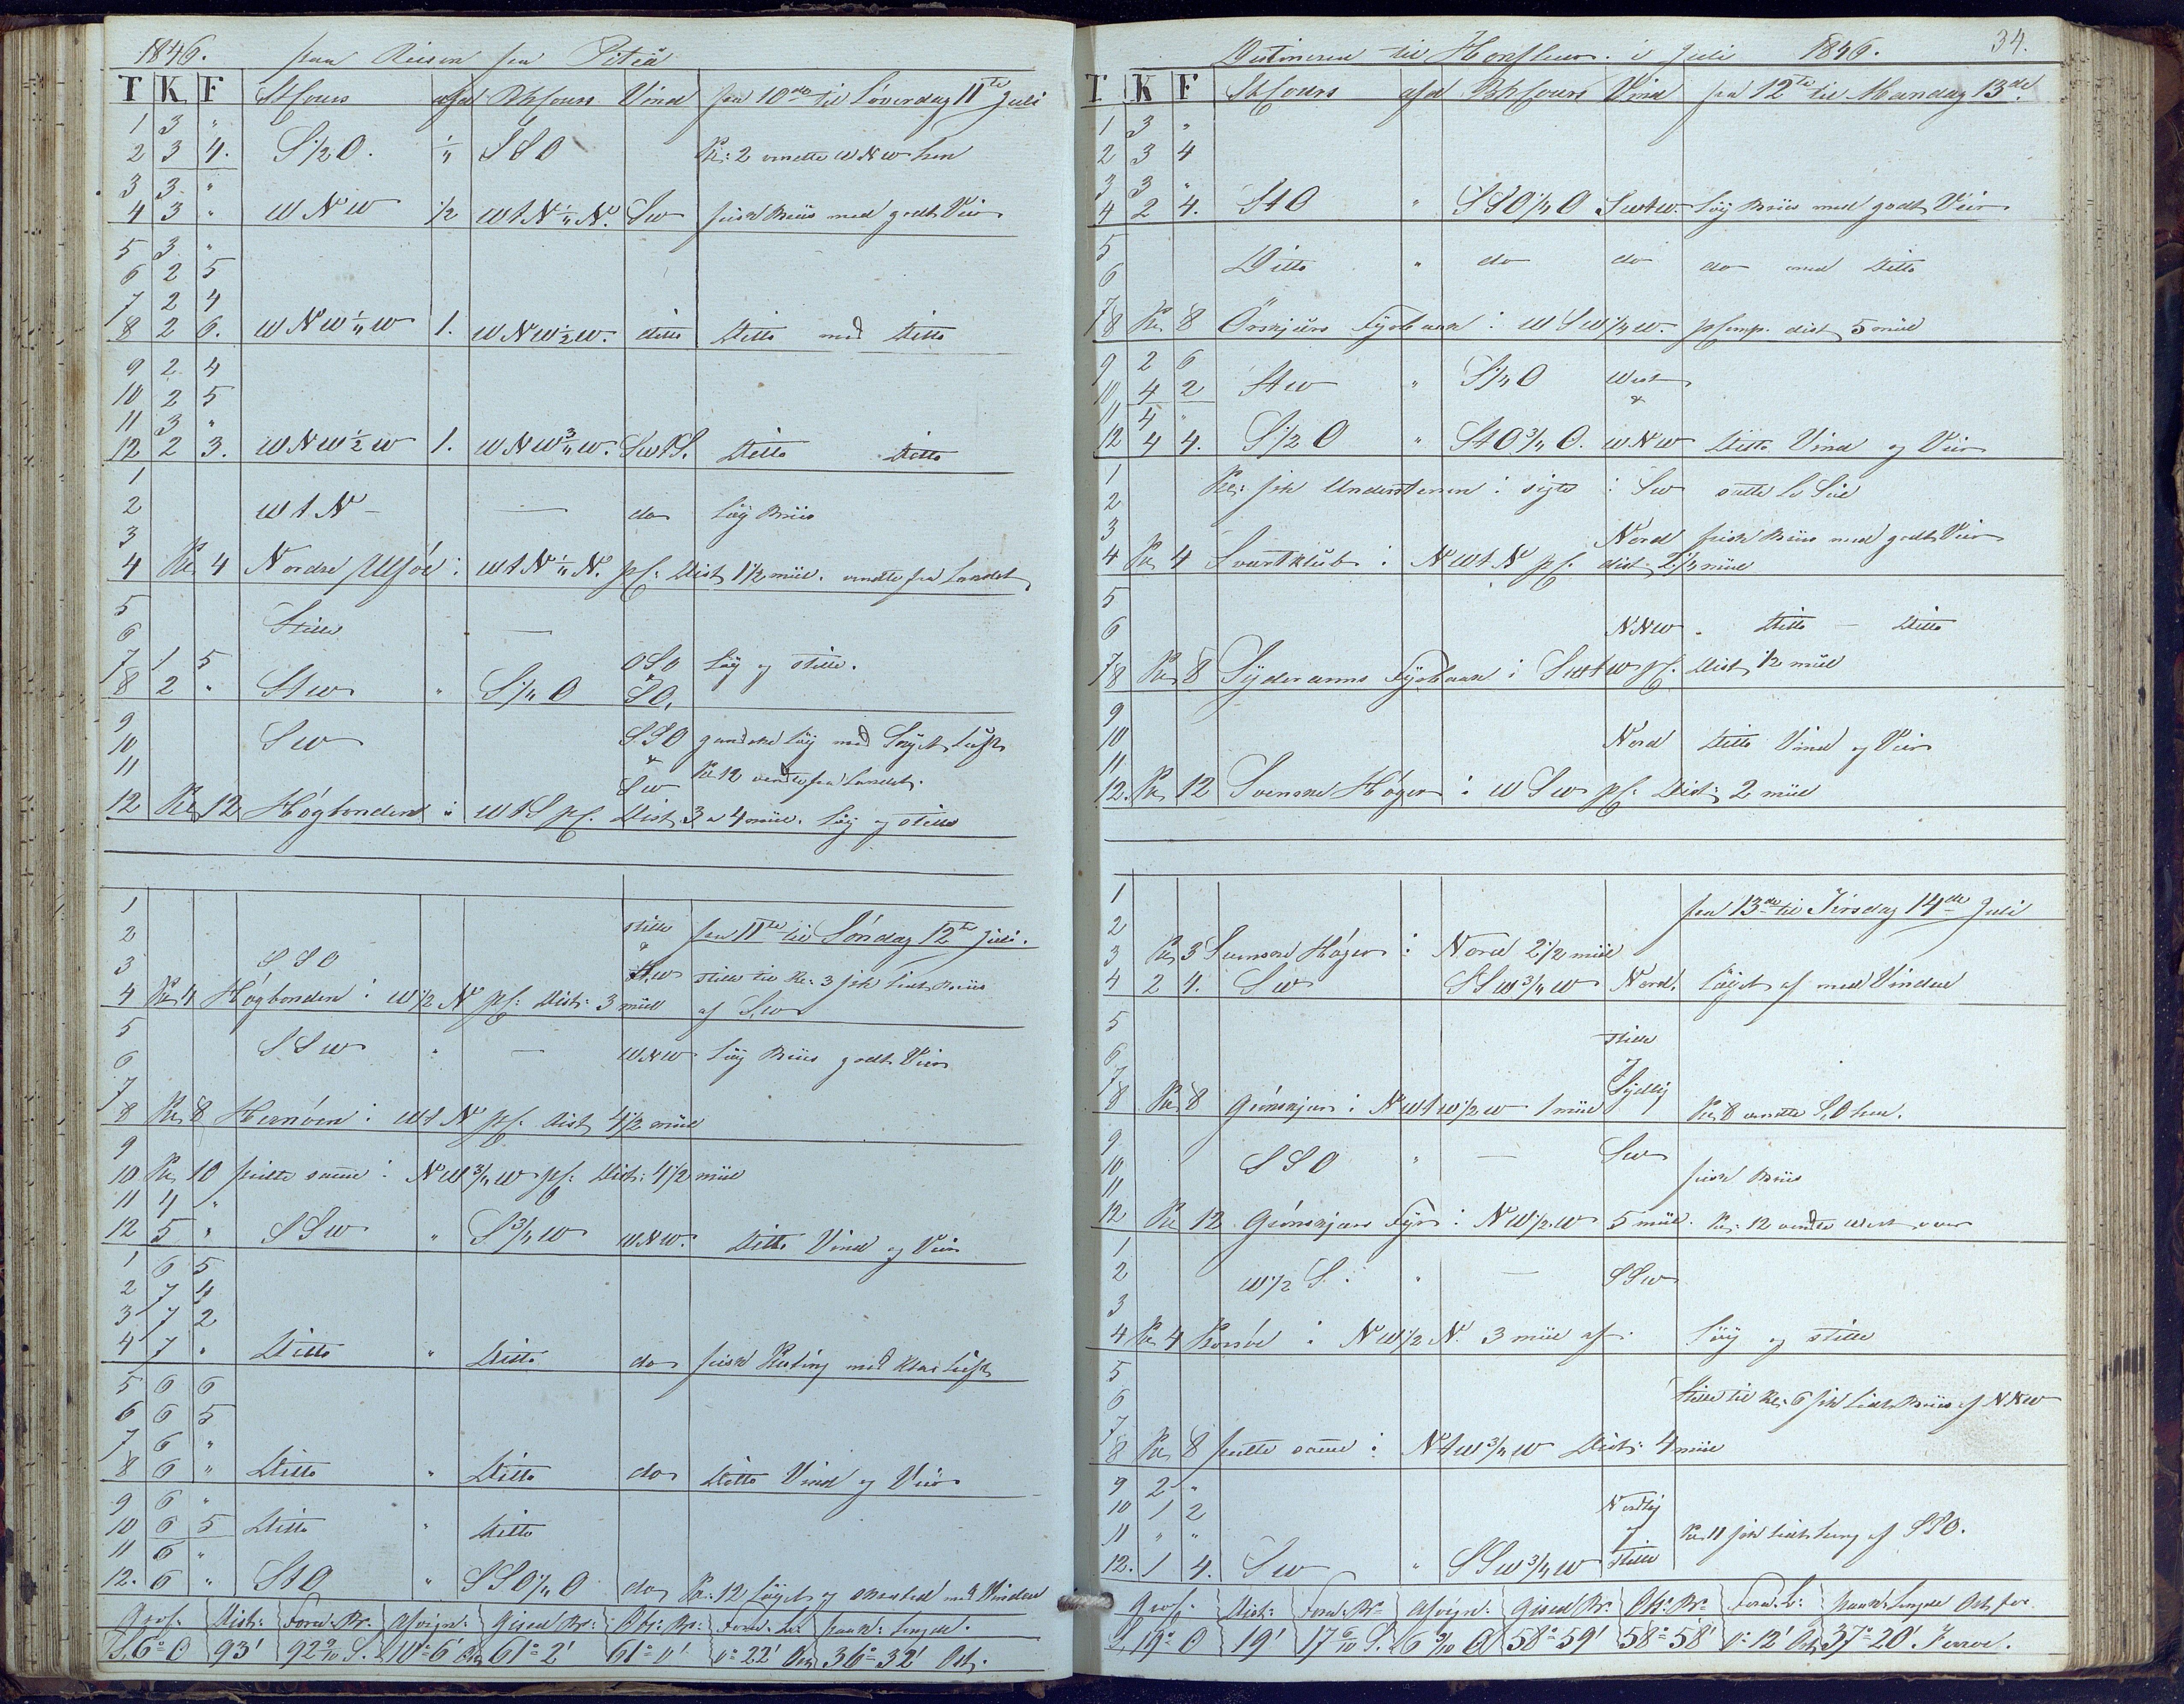 1846. fra Reisen fra Piteå
T K F StCours afd BhCours Vind fra 10de til Löverdag 11te Juli
1 3 "
2 3 4. S 1/2 O. 1/4 SSO Kl: 2 vendte WNW hen
3 3 "
4 3 " WNW 1/2 WtN 1/4 N. SW frisk Briis med godt Veir
5 3 "
6 2 5
7 2 4
8 2 6. WNW 1/4 W 1. WNW 1/2 W. ditto Ditto med Ditto
9 2 4
10 2 5
11 3 "
12 2 3. WNW 1/2 W 1. WNW 3/4 W. SWtS. Ditto Ditto
1
2 WtN — — do Löy Briis
3
4 Kl 4 Nordre Ulföe i WtN 1/4 N. pC: Dist 1 1/2 miil. vendte fra Landet
5
6 Stille —
7 1 5 OSO Löy og stille.
8 2 " StW " S 1/4 O & SO.
9
10 SW SSO gandske Löy med Skyet Luft
11 & Kl 12 vendte fra Landet.
12 Kl 12 Högbonden i WtS pC. SW Dist 3 a 4 miil. Löy og stille
1
2 stille fra 11te til Söndag 12te Juli.
3 SSO & SW stille til Kl: 3 fik lidt Briis
4 Kl 4 Högbonden i W 1/2 N pC: Dist: 3 miil af SW
5
6 SSW " — WNW Löy Briis godt Veir
7
8 Kl 8 Hernöen i WtN pC. Dist 4 1/2 miil
9
10 Kl 10 peilte samme i NW 3/4 W pC: Dist: 4 1/2 miil
11 4 "
12 5 " SSW " S 3/4 W WNW. Ditto Vind og Veir
1 6 5
2 7 4
3 7 2
4 7 " Ditto " Ditto do frisk Kuling med klar Luft
5 6 6
6 6 5
7 6 "
8 6 " Ditto " Ditto do Ditto Vind og Veir
9 6 "
10 6 5 Ditto " Ditto
11 6 "
12. 6 " StO " SSO 1/4 O do Kl: 12 Löyet og med Vinden
Dist: Forand: Br: Afvign: Gisset Br: Obs: Br: Forand: L:
S. 6° O 93' 92 9/10 S. 10° 6' Ost 61° 2' 61° 0' 0° 22' Ost 36° 32' Ost.
Destineret til Honfleur. i Juli 1846. 34.
T K F StCours afd BhCours Vind fra 12te til Mandag 13de
1 3 "
2 3 4
3 3 "
4 2 4. StO " SSO 1/4 O SWtW. Löy Briis med godt Veir
5
6 Ditto " do do do med Ditto
7
8 Kl 8 Örskjärs Fyrbaak i WSW 1/4 W. pComp. dist 5 miil
9 2 6
10 4 2 StW " S 1/4 O West
11 4 " &
12 4 4. S 1/2 O " StO 3/4 O. WNW Ditto Vind og Veir
1 Kl: fik Understenen i sigte i SW satte Læ Seil
2
3 Nord frisk Briis med godt Veir
4 Kl 4 Svartklub i NWtN pC. dist 2 1/2 miil
5
6 NNW. Ditto — Ditto
7
8 Kl 8 Syderarms Fyrbaak i SWtW pC. Dist 1/2 miil
9
10 Nord Ditto Vind og Veir
11
12. Kl 12 Svenske Höger i WSW pC. Dist: 2 miil
1 fra 13de til Tirsdag 14de Juli
2
3 Kl 3 Svenske Höger i Nord 2 1/2 miil
4 2 4. SW SSW 3/4 W Nord. Löyet af med Vinden
5 stille
6 &
7 Sydlig
8 Kl 8 Grönskjær i NWtW 1/2 W 1 miil Kl 8 vendte SO hen.
9
10 SSO " — SW frisk Briis
11
12 Kl 12 Grönskjærs Fyr i NW 1/2 W 5 miil. Kl: 12 vendte West over
1
2 W 1/2 S. " — SSW
3
4 Kl 4 Korsöe i NW 1/2 N. 3 miil af. Löy og stille
5
6 Stille til Kl: 6 fik lidt Briis af NNW
7
8 Kl 8 peilte samme i NtW 3/4 W Dist: 4 miil
9 2 "
10 1 2 Nordlig
11 " " & Kl 11 fik lidt af SSO.
12. 1 4. SW " SSW 3/4 W stille
Dist: Forand: Br: Afvign: Gisset Br: Obs: Br: Forand: L:
S 19° O 19' 17 6/10 S. 6 3/10 O 58° 59' 58° 58' 0° 12' Ost 37° 20'